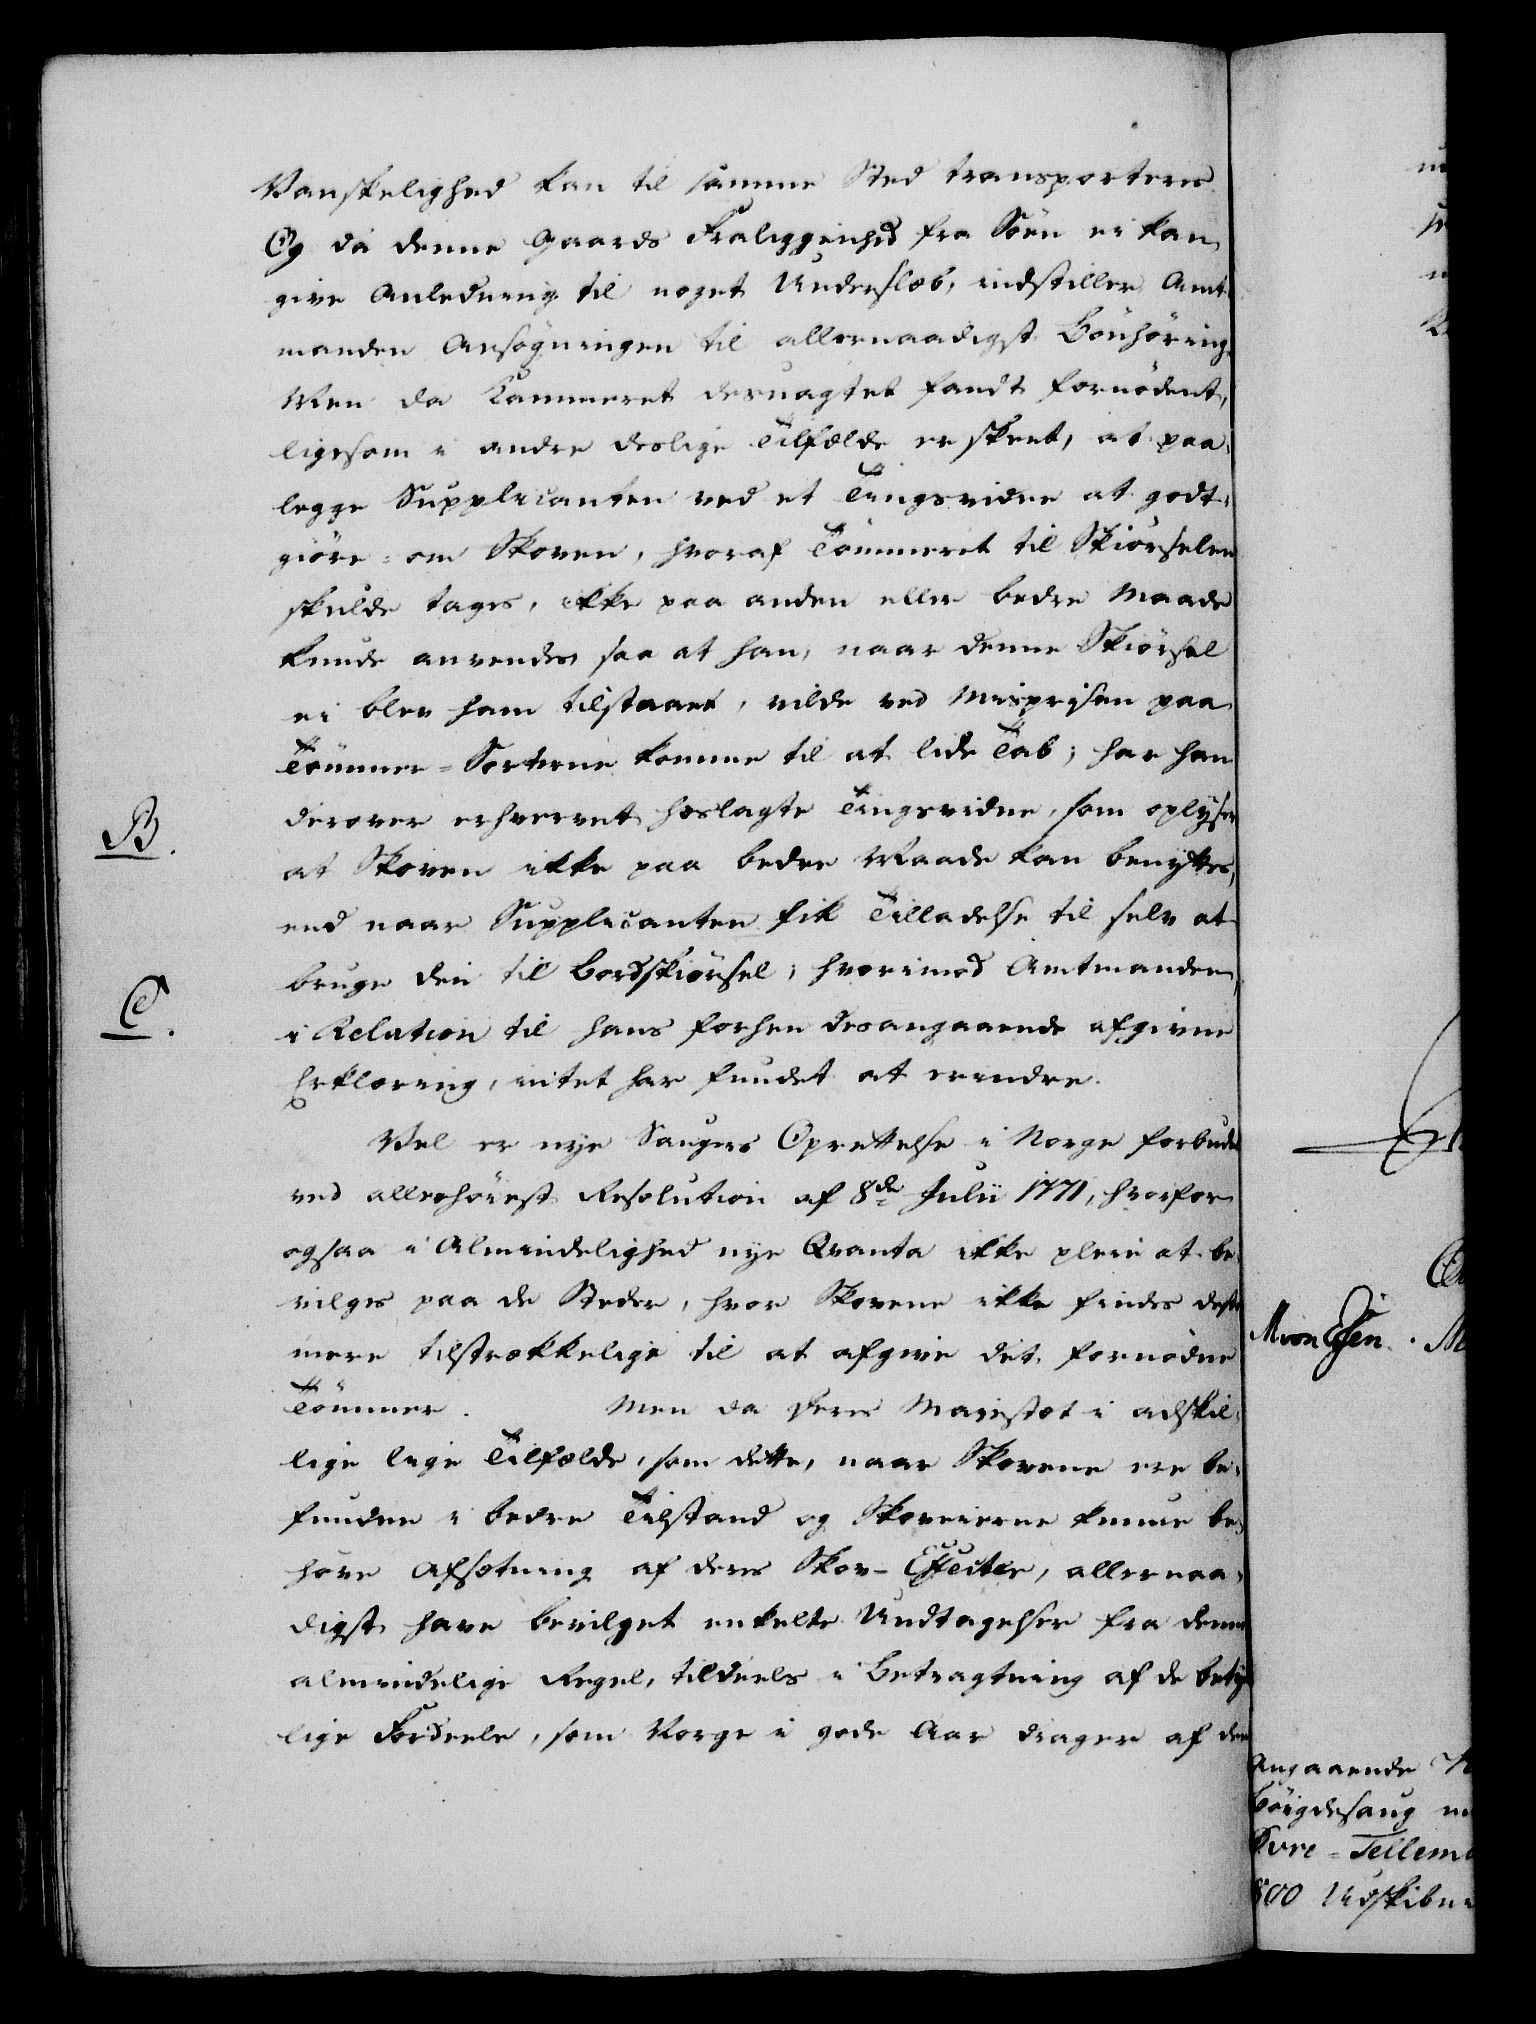 Vanskelighed kan til samme Sted transporteres.
Og da denne Gaards Fraliggenhed fra Söen ei kan
give Anledning til noget Underslæb, indstiller Amt-
manden Ansøgningen til allernaadigst Bönhöring.
Men da Kammeret desuagtet fandt fornödent,
ligesom i andre deslige Tilfælde er skeet, at paa-
legge Supplicanten ved et Tingsvidne at godt-
giöre: om Skoven, hvoraf Tömmeret til Skiörselen
skulde tages, ikke paa anden eller bedre Maade
kunde anvendes, saa at han, naar denne Skiörsel
ei blev ham tilstaaet, vilde ved Misprisen paa
Tömmer-Sorterne komme til at lide Tab; har han
B.
derover erhvervet hoslagte Tingsvidne, som oplyser
at Skoven ikke paa bedre Maade kan benyttes,
end naar Supplicanten fik Tilladelse til selv at
C.
bruge den til Bordskiörsel; hvorimod Amtmanden,
i Relation til hans forhen desangaaende afgivne
Erklæring, intet har fundet at erindre.
Vel er nye Saugers Oprettelse i Norge forbudet
ved allerhöiest Resolution af 8de Julii 1771, hvorfor
ogsaa i Almindelighed nye Qvanta ikke pleie at be-
vilges paa de Steder, hvor Skovene ikke findes desto
mere tilstrækkelige til at afgive det fornødne
Tömmer. Men da Deres Majestæt i adskil-
lige lige Tilfælde, som dette, naar Skovene ere be-
fundne i bedre Tilstand og Skoveierne kunne be-
höve Afsætning af deres Skov-Effecter, allernaa-
digst have bevilget enkelte Undtagelser fra denne
almindelige Regel, tildeels i Betragtning af de betyde
lige Fordeele, som Norge i gode Aar drager af den
M von Essen.
Angaaende
Böigdesaug
Övre-Tellem
500 Udskibn